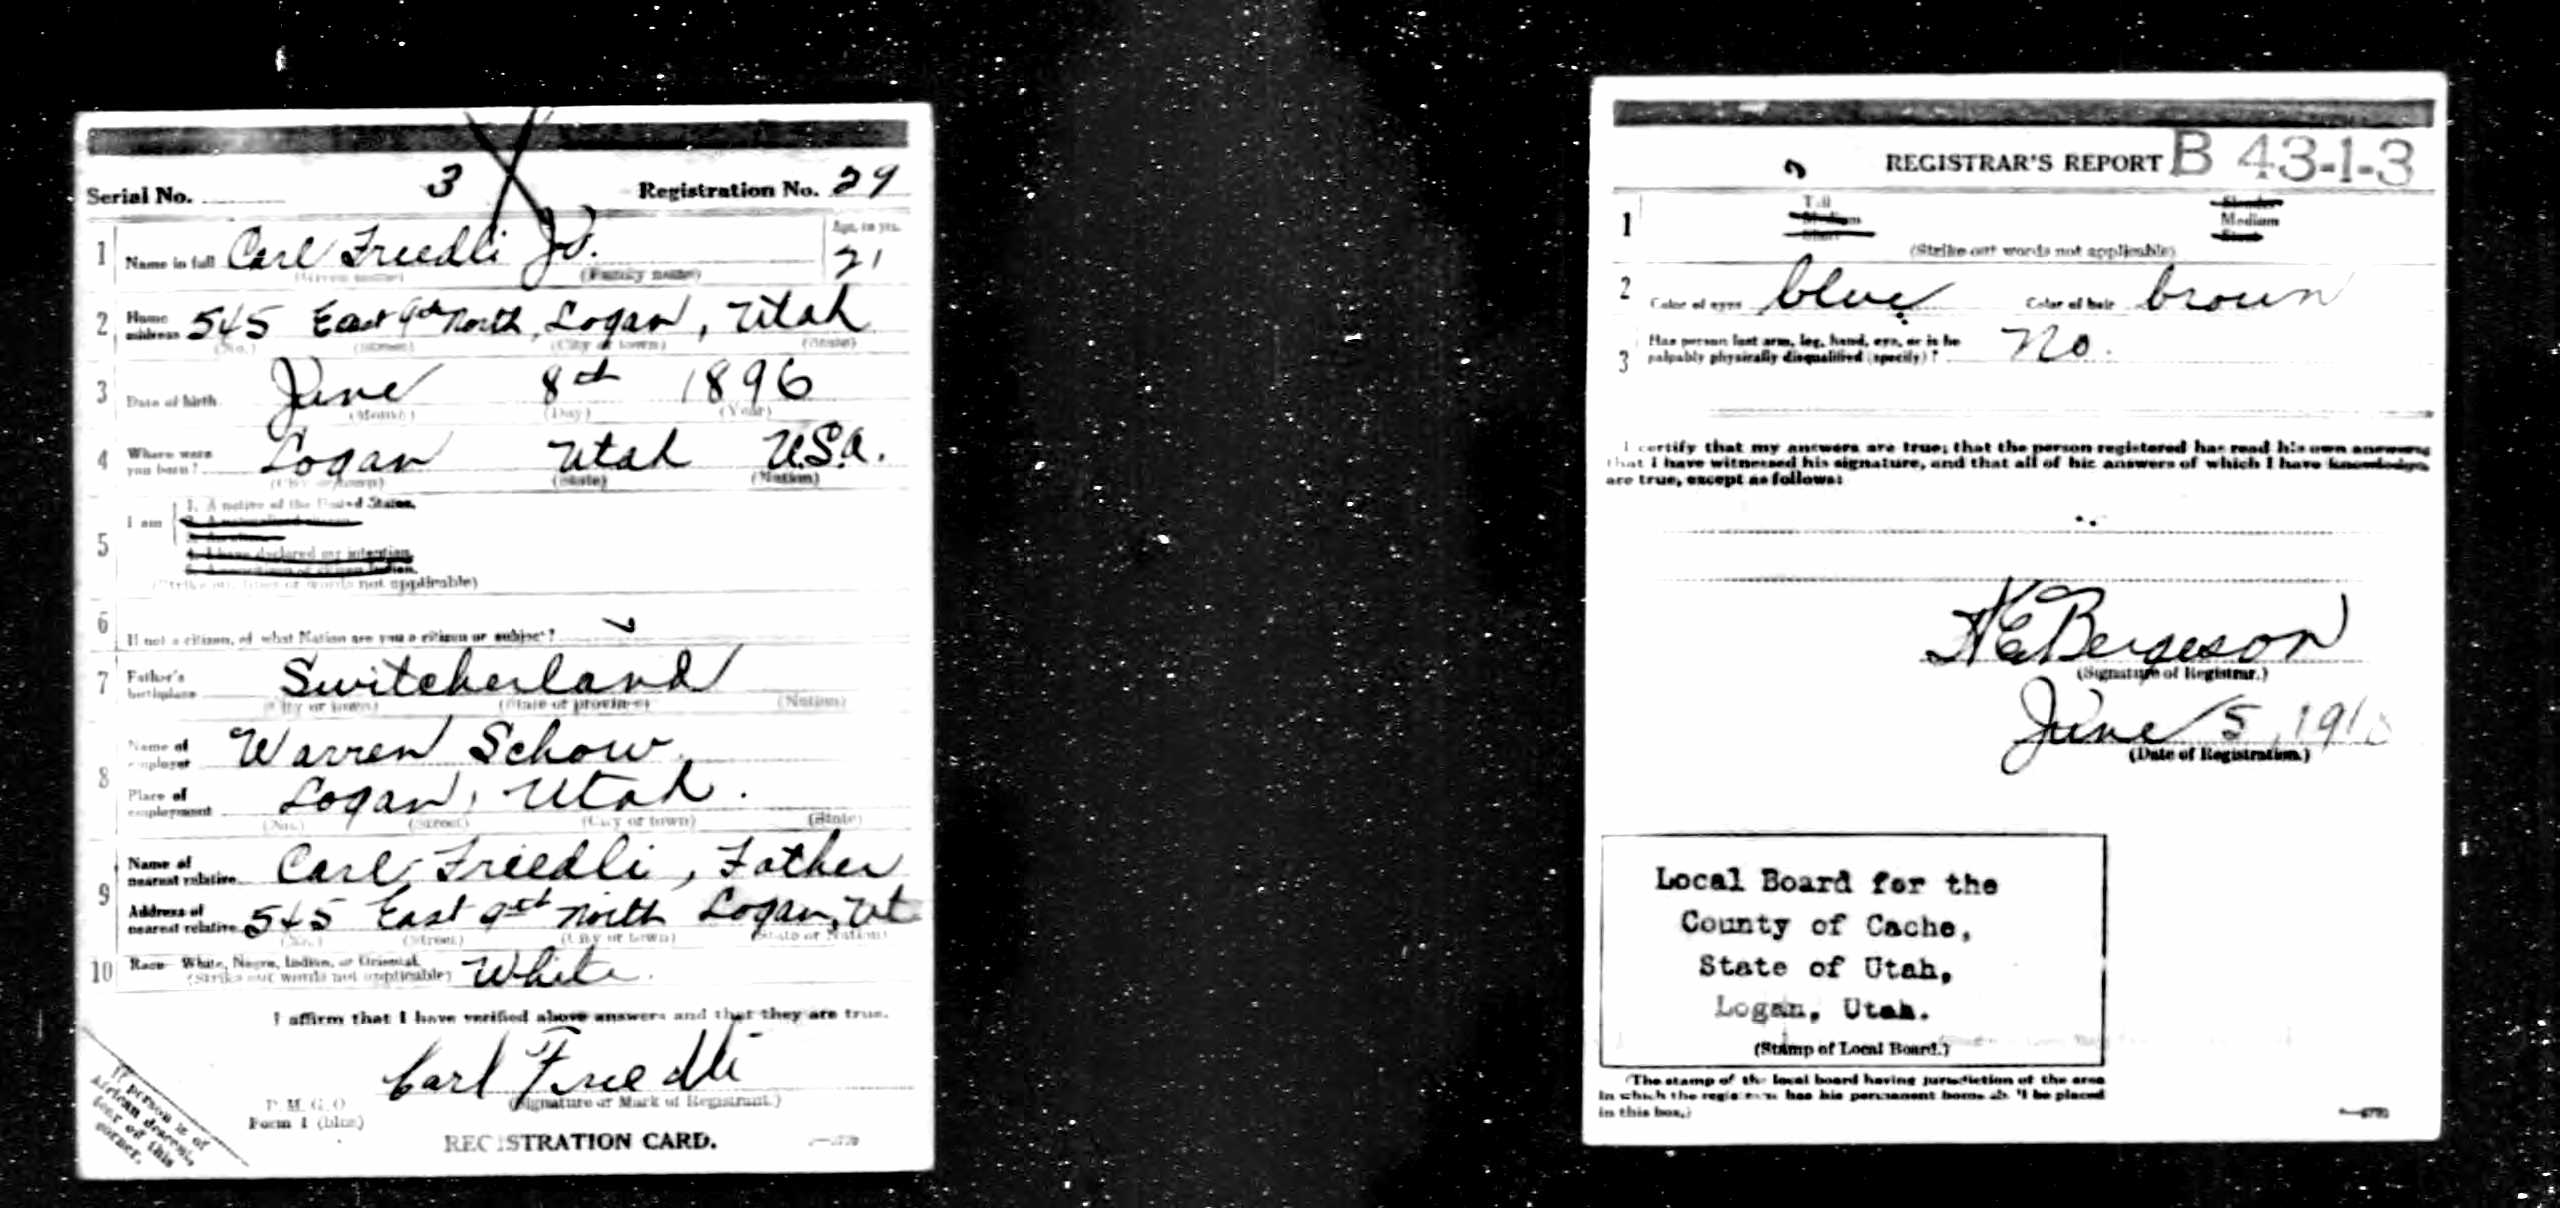 Serial No. 3 Registration No. 29
1 Name in full Carl Friedli Jr. Age, in yrs. 21
(Given name) (Family name)
2 Home address 545 East 9th North, Logan, Utah
(No.) (Street) (City or town) (State)
3 Date of birth June 8th 1896
(Month) (Day) (Year)
4 Where were you born? Logan Utah U.S.A.
(City or town) (State) (Nation)
1. A native of the United States.
I am 2. A naturalized citizen.
3. An alien.
4. I have declared my intention.
5 5. A noncitizen or citizen Indian.
(Strike out lines or words not applicable)
6 If not a citizen, of what Nation are you a citizen or subject?
7 Father's birthplace Switcherland
(City or town) (State or province) (Nation)
Name of employer Warren Schow
8 Place of employment Logan, Utah.
(No.) (Street) (City or town) (State)
Name of nearest relative Carl Friedli, Father
9 Address of nearest relative 545 East 9th North Logan, Ut
(No.) (Street) (City or town) (State or Nation)
10 Race—White, Negro, Indian, or Oriental. White.
(Strike out words not applicable)
I affirm that I have verified above answers and that they are true.
Carl Friedli
(Signature or Mark of Registrant.)
P. M. G. O.
Form 1 (blue)
REGISTRATION CARD.
If person is of
African descent,
tear off this
corner.
REGISTRAR'S REPORT B 43-1-3
1 Tall Slender
Medium Medium
Short Stout
(Strike out words not applicable)
2 Color of eyes blue Color of hair brown
3 Has person lost arm, leg, hand, eye, or is he
palpably physically disqualified (specify)? No.
I certify that my answers are true; that the person registered has read his own answers;
that I have witnessed his signature, and that all of his answers of which I have knowledge
are true, except as follows:
Bergeson
(Signature of Registrar.)
June 5, 1918
(Date of Registration.)
Local Board for the
County of Cache,
State of Utah,
Logan, Utah.
(Stamp of Local Board.)
(The stamp of the local board having jurisdiction of the area
in which the registrant has his permanent home shall be placed
in this box.)